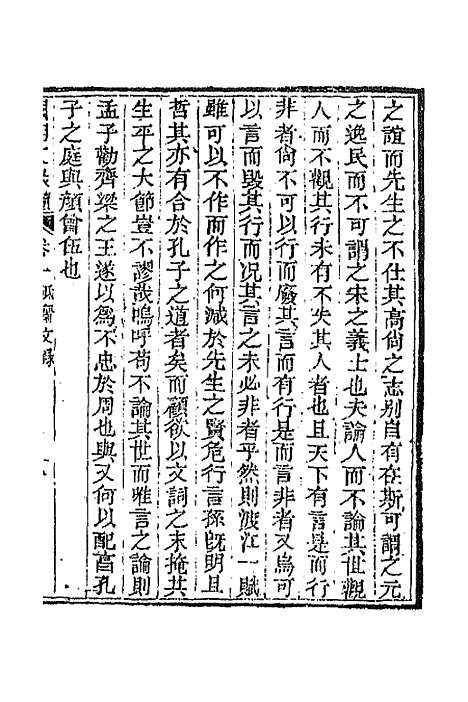 之誼而先生之不仕其高尙之志別自有在斯可謂之元
之逸民而不可謂之宋之義士也夫論人而不論其世觀
人而不觀其行未有不失其人者也且天下有言是而行
非者尙不可以行而廢其言而有行是而言非者又烏可
以言而毀其行而况其言之未必非者乎然則渡江一賦
雖可以不作而作之何減於先生之賢危行言孫旣明且
哲其亦有合於孔子之道者矣而顧欲以文詞之末掩其
生平之大節豈不謬哉嗚呼苟不論其世而唯言之論則
孟子勸齊梁之王遂以爲不忠於周也與又何以配享孔
子之庭與顏曾伍也
卷一 文錄